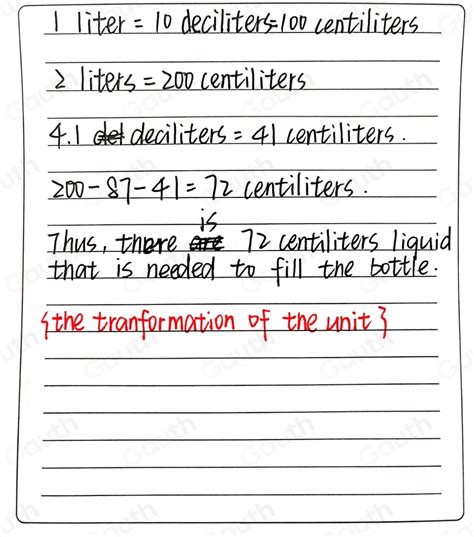 1 liter = 10 deciliters=100 centiliters
2 liters = 200 centiliters
4.1 del deciliters = 41 centiliters.
200-87-41=72 centiliters.
is
Thus, there are 72 centiliters liquid
that is needed to fill the bottle.
{the tranformation of the unit}